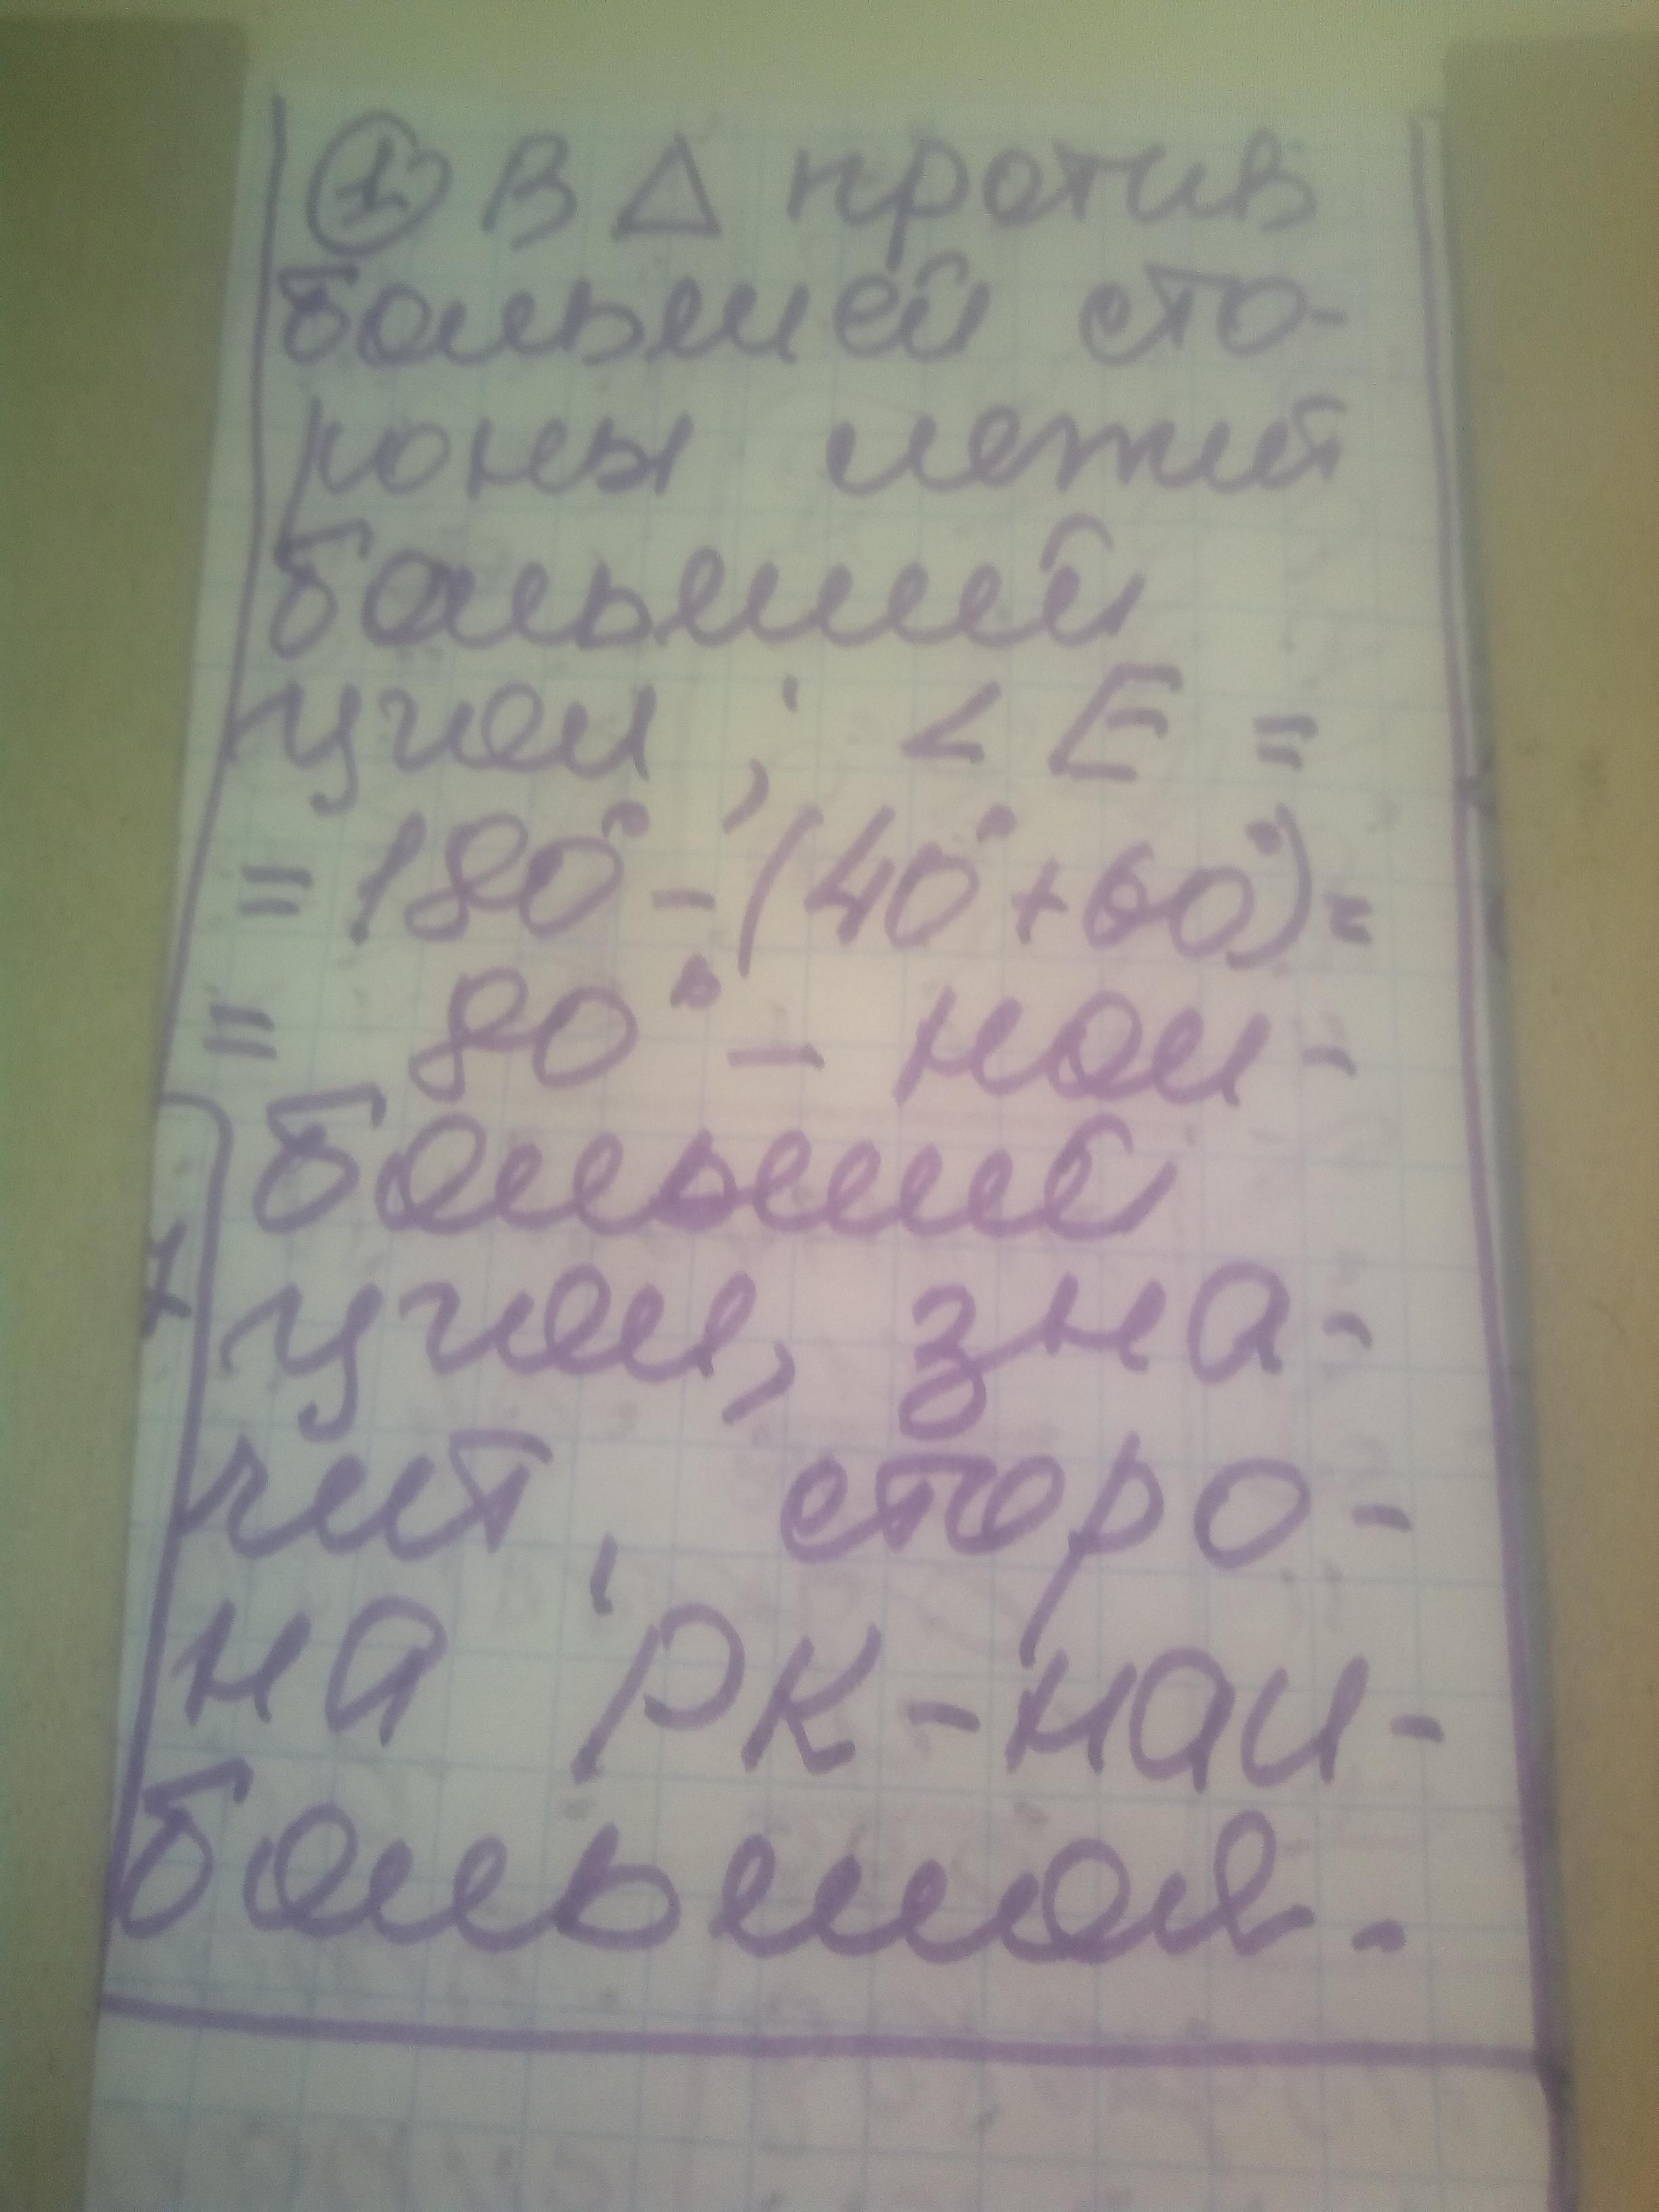 ① В △ против
большей сто-
роны лежит
больший
угол ; < E =
= 180° - (40° + 60°) =
= 80° - наи-
больший
угол, зна-
чит, сторо-
на PK - наи-
большая.